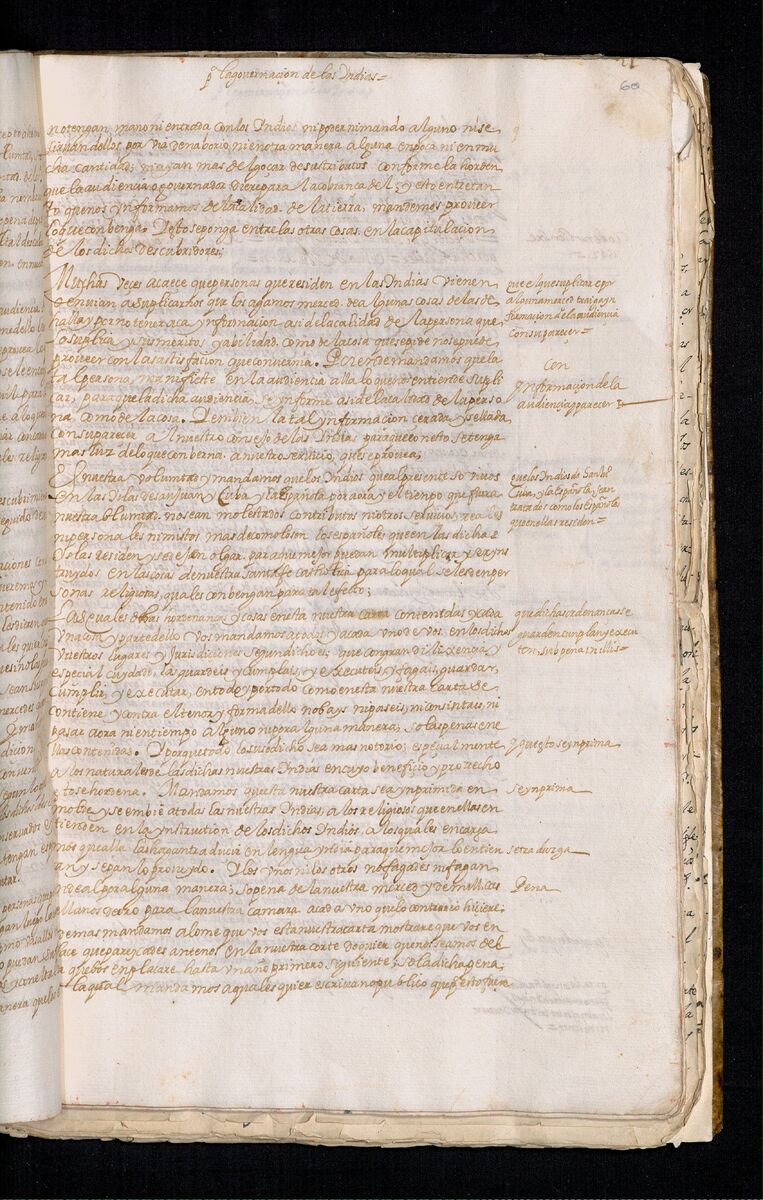 pª la governaçion de las Indias =
60
no tengan mano ni entrada con los Indios ni poder ni mando alguno ni se
sirvan dellos por via de naboria ni en otra manera alguna en poca ni en mu
cha cantidad; ni ayan mas del goçar de sus tributos conforme la horden
que la audiencia o governador diere para la cobrança del; y esto entretan
to que nos ynformamos de la calidad de la tierra, mandemos proveer
lo que convenga. Y esto se ponga entre las otras cosas en la capitulacion
de los dichos descubridores;
Muchas veces acaece que personas que residen en las Indias vienen
o envian a suplicarnos que les agamos merced de algunas cosas de las de
halla y por no tener aca ynformacion asi de la calidad de la persona que
lo suplica y sus meritos y abilidad como de la cosa que se pide no se puede
proveer con la satisfacion que convernia. Por ende mandamos que la
tal persona, manifieste en la audiencia alla lo que nos entiende supli
car, para que la dicha audiencia, se ynforme asi de la calidad de la perso
na como de la cosa. Y embien la tal ynformacion cerada y sellada
con su parecer al nuestro consejo de las Indias para que con esto se tenga
mas luz de lo que conberna a nuestro servicio, que se provea;
Es nuestra voluntad y mandamos que los Indios que al presente son vivos
en las Islas de san Juan y Cuba y la Española por aora y el tiempo que fuere
nuestra voluntad no sean molestados con tributos ni otros servicios reales
ni personales ni mistos mas de como lo son los españoles que en las dichas
Yslas residen y se dejen olgar para que mejor puedan multiplicar y ser yns
truydos en las cosas de nuestra santa fe catholica para lo qual se les den per
sonas religiosas, quales conbengan para tal efecto;
Las quales dichas hordenanças y cosas en esta nuestra carta contenidas y cada
una cosa y parte dello vos mandamos a todos y a cada uno de vos en los dichos
vuestros lugares y jurisdiciones segun dicho es; que con gran diligencia y
especial cuydado, las guardeis y cumplais, y executeis, y fagais, guardar,
cumplir, y executar, en todo y por todo como en esta nuestra carta se
contiene y contra el tenor y forma dello no bays ni paseis, ni consintais, ni
pasar aora ni en tiempo alguno ni por alguna manera; so las penas en e
llas contenidas. Y porque todo lo susodicho sea mas notorio; especialmente
a los naturales de las dichas nuestras Indias en cuyo beneficio y provecho
esto se hordena. Mandamos que esta nuestra carta sea ynprimida en
molde, y se embie a todas las nuestras Indias, a los religiosos que en ellas en
tienden en la ynstrucion de los dichos Indios, a los quales encarga
mos que alla las hagan traducir en lengua yndia para que mejor lo entien
dan y sepan lo proveydo. Y los unos ni los otros no fagades ni fagan
ende al por alguna manera; so pena de la nuestra merced y de mill cas
tellanos de oro para la nuestra camara a cada uno que lo contrario hiciere.
Y demas mandamos al ome que vos esta nuestra carta mostrare que vos en
place que parezcades ante nos en la nuestra corte do quier que nos seamos del
dia que vos enplacare hasta un año primero siguiente; so la dicha pena;
so la qual mandamos a qualesquier escrivano publico que para esto fuere
que el que suplicare por
alguna merced traiga yn
formacion de la audiencia
con su parecer =
Con
Ynformacion de la
audiencia y parecer
que los Indios de San Juº
Cuba, y la Española, sean
tratados como los Españoles
que en ellas residen =
que dichas ordenanças se
guarden cunplan y execu
ten, so penas in illis =
Y que esto se ynprima
se ynprima
se traduzga
Pena